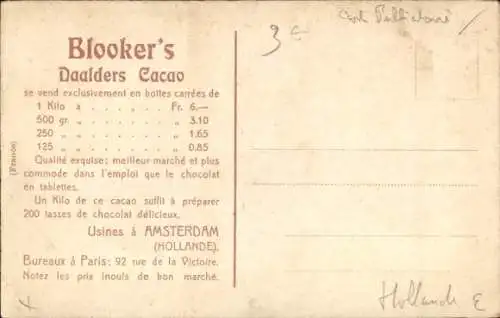 Blooker's
Daalders Cacao
se vend exclusivement en boîtes carrées de
1 Kilo a . . . . . Fr. 6.—
500 gr. „ . . . . . „ 3.10
250 „ „ . . . . . „ 1.65
125 „ „ . . . . . „ 0.85
Qualité exquise; meilleur marché et plus
commode dans l'emploi que le chocolat
en tablettes.
Un Kilo de ce cacao suffit à préparer
200 tasses de chocolat délicieux.
Usines à AMSTERDAM
(HOLLANDE).
Bureaux à Paris: 92 rue de la Victoire.
Notez les prix inouïs de bon marché.
(France)
3
Hollande E